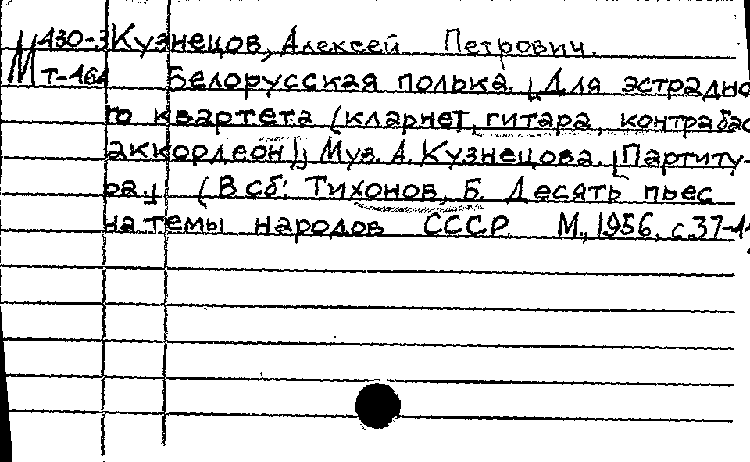 М 430-3 Кузнецов, Алексей Петрович.
Т-464 Белорусская полька. [Для эстрадно
го квартета (кларнет, гитара, контрабас
аккордеон)]; Муз. А. Кузнецова. [Партиту-
ра.] (В сб: Тихонов, Б. Десять пьес
на темы народов СССР М., 1956, с 37-44